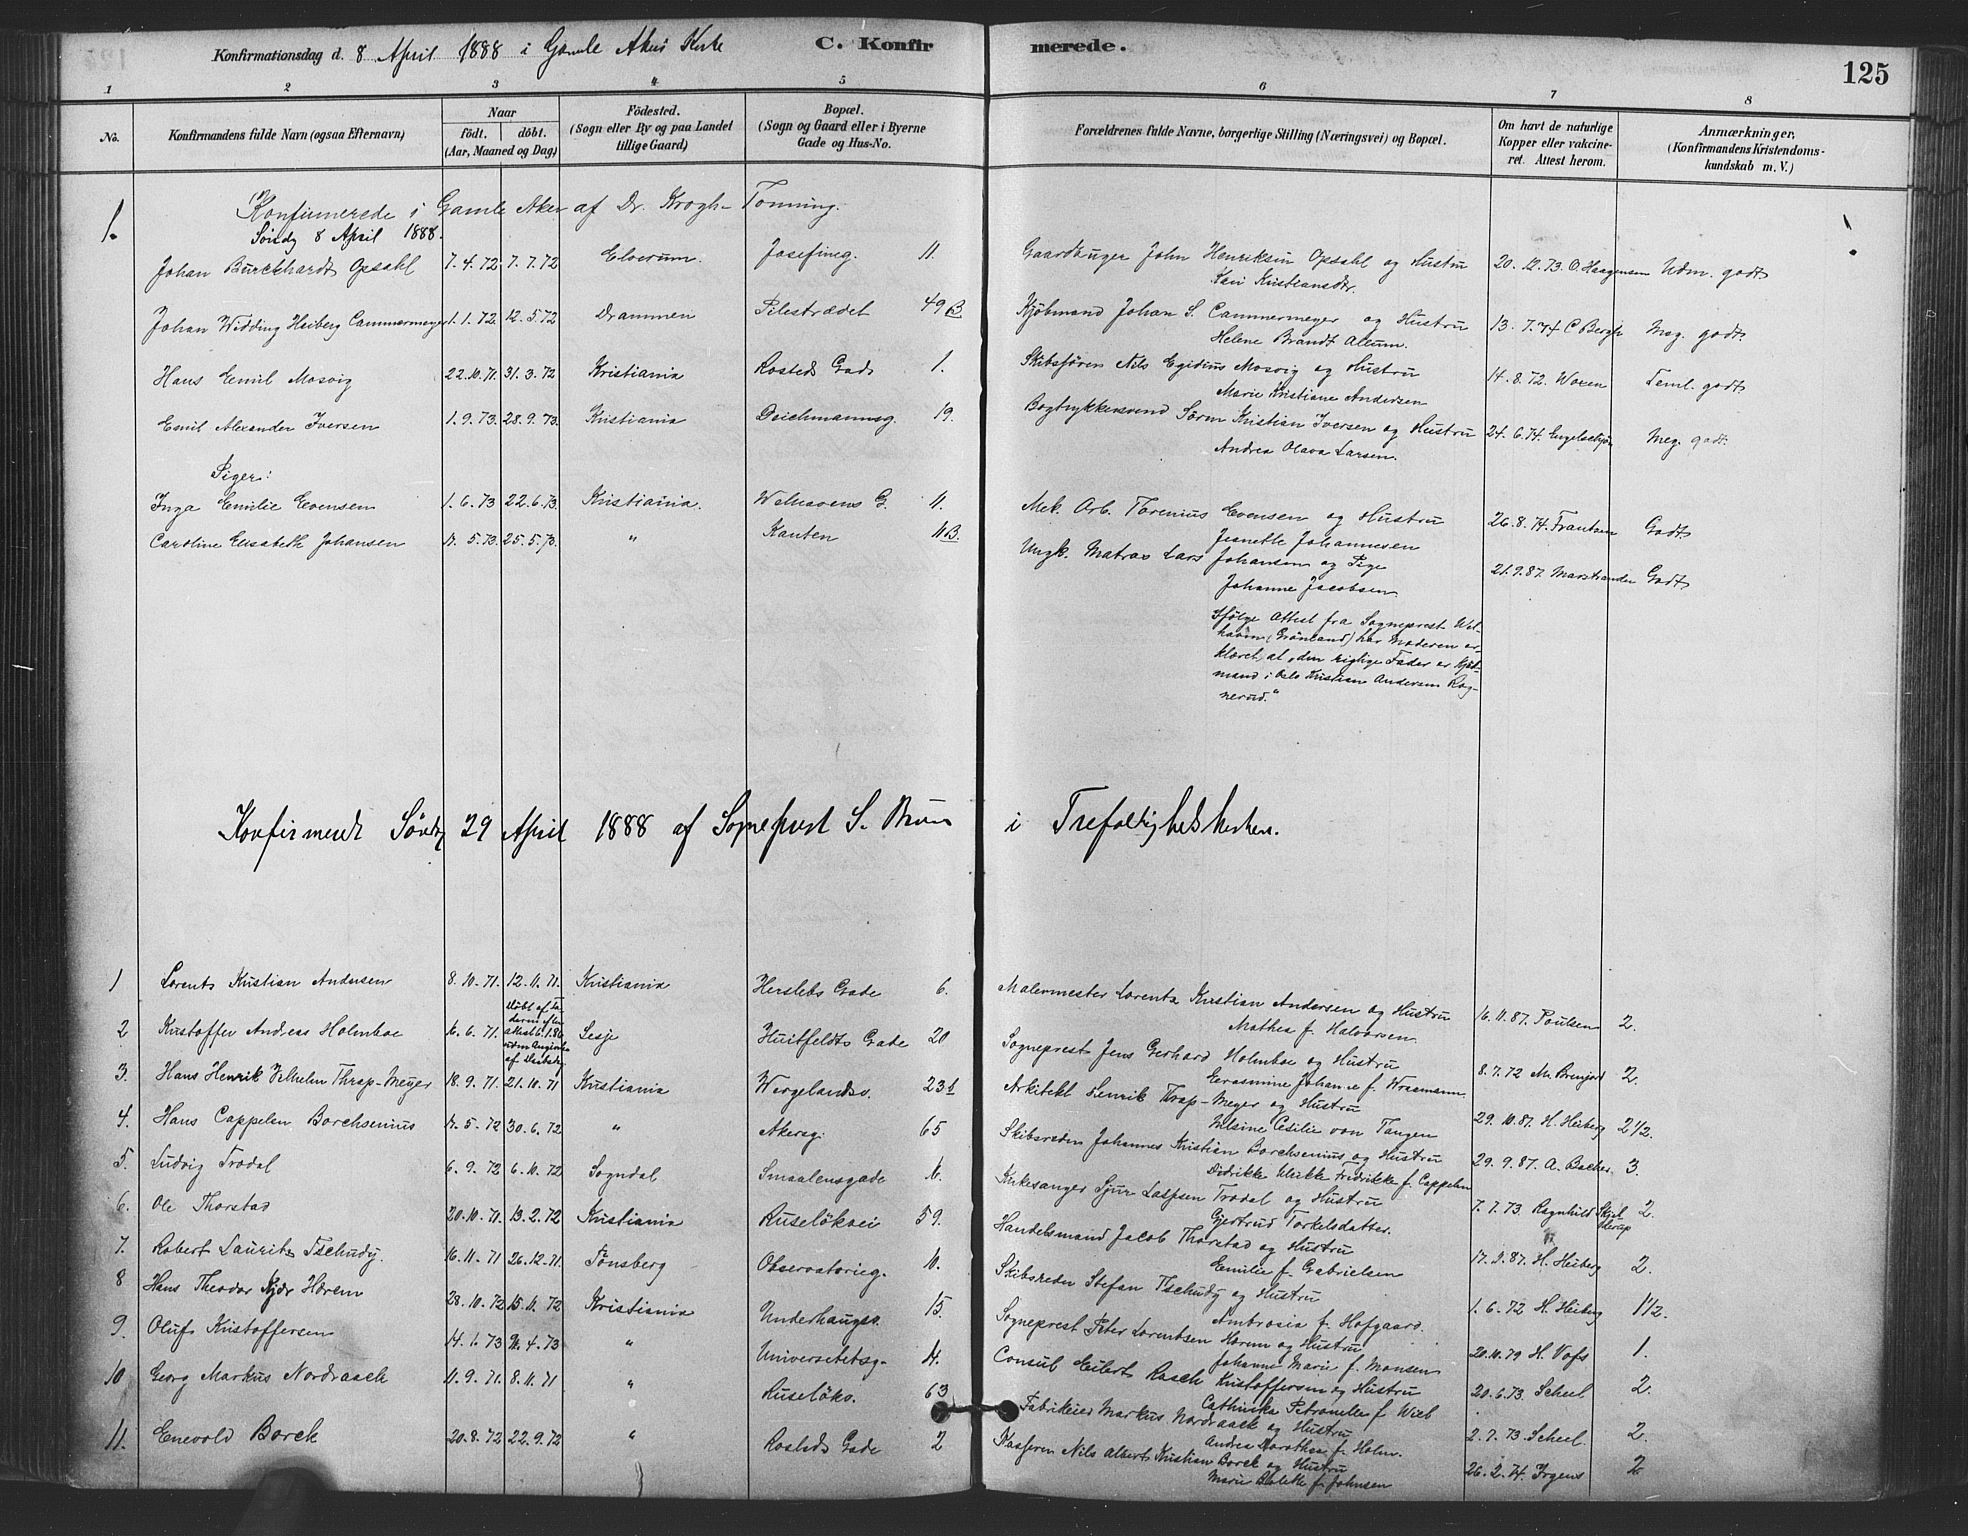 Konfirmationsdag d. 8 April 1888 i Gamle Akers Kirke C. Konfirmerede. 125
1 2 3 4 5 6 7 8
No.
Konfirmandens fulde Navn (ogsaa Efternavn)
Naar
födt. döbt.
(Aar, Maaned og Dag)
Födested.
(Sogn eller By og paa Landet
tillige Gaard)
Bopæl.
(Sogn og Gaard eller i Byerne
Gade og Hus-No.
Forældrenes fulde Navne, borgerlige Stilling (Næringsvei) og Bopæl.
Om havt de naturlige
Kopper eller vakcine-
ret. Attest herom.
Anmærkninger,
(Konfirmandens Kristendoms-
kundskab m. V.)
1. Konfirmerede i Gamle Aker af Dr. Krogh-Tonning.
Søndg 8 April 1888.
Johan Burckhardt Opsahl 7.4.72 7.7.72 Elverum. Josefineg. 11. Gaardbruger John Henriksen Opsahl og Hustru 20.12.73. O. Haagensen Udm. godt
Kari Kristiansdr.
Johan Widding Heiberg Cammermeyer 1.1.72. 12.5.72 Drammen Pilestrædet 49 B. Kjøbmand Johan S. Cammermeyer og Hustru 13.7.74 C Bergh Meg. godt.
Helene Brandt Alum.
Hans Emil Mosvig 22.10.71. 31.3.72 Kristiania Rosteds Gad. 1. Skibsfören Nils Egidius Mosvig og Hustru 14.8.72. Woxen Teml. godt
Marie Kristiane Andersen
Emil Alexander Iversen 1.9.73. 28.9.73. Kristiania Deichmannsg. 19. Bogtrykkersvend Sören Kristian Iversen og Hustru 24.6.74. Meg. godt.
Andrea Olava Larsen.
Piger:
Inga Emilie Evensen 1.6.73 22.6.73. Kristiania. Welhavens G. 11. Mek. Arb. Torenius Evensen og Hustru 26.8.74. Frantzen Godt
Jeanette Johannesen
Caroline Elisabeth Johansen 5.73. 25.5.73. " Kanten 11 B. Ungk. Matros Lars Johansen og Pige 21.9.87. Marstrander Godt
Johanne Jacobsen.
Ifölge Attest fra Sogneprest Wel-
haven (Grönland) har Moderen er-
klæret, at „den rigtige Fader er Kjöb-
mand i Oslo Kristian Andersen Rog-
nerud."
Konfirmerede Søndg 29 April 1888 af Sogneprest S. Bruun i Trefoldighedskirken.
1 Lorents Kristian Andersen 8.10.71. 12.11.71. Kristiania Herslebs Gade 6. Malermester Lorentz Kristian Andersen og Hustru 16.11.87. Poulsen 2.
Mathea f. Halvorsen.
2 Kristoffer Andreas Holmboe 16.6.71. Lesje Huitfeldts Gade 20 Sogneprest Jens Gerhard Holmboe og Hustru 8.7.72 M. 2.
Erasmine Johanne f. Wraamann.
3. Hans Henrik Vilhelm Thrap-Meyer 18.9.71. 21.10.71 Kristiania Wergelandsv. 23 Arkitekt Henrik Thrap-Meyer og Hustru 29.10.87. H. Heiberg 2 1/2.
Cecilie von Tangen
4. Hans Cappelen Borchsenius 5.72 30.6.72 " Akersg. 65 Skibsreder Johannes Kristian Borchsenius og Hustru 29.9.87. A. Backer 3
Didrikke Ulrikke Fredrikke f. Cappelen
5. Ludvig Trodal 6.9.72 6.10.72 Sogndal Smaalensgade Kirkesanger Sjur Trodal og Hustru 7.7.73. Ragnhild 2.
Gjertrud Torkelsdatter.
6. Ole Thorstad 20.10.71. 13.2.72 Kristiania Ruselökvei 59. Handelsmand Jacob Thorstad og Hustru 17. 87. H. Heiberg 2.
Emilie f. Gabrielsen
7. Robert Laurits Tschudy 16.11.71 26.12.71. Tönsberg Observatorieg. 10. Skibsreder Stefan Tschudy og Hustru 1.6.72 H. Heiberg 1 1/2.
Ambrosia f. Hofgaard.
8 Hans Theodor Horem 28.10.72 15.11.72 Kristiania Underhaugsv. 15 Sogneprest Peter Lorentsen Horem og Hustru 20.10.79 H. Voss 1.
Johanne Marie f. Monsen
9. Oluf Kristoffersen 14.1.73 4.73 " Universitetsg. 14. Consul Eilert Rosch Kristoffersen og Hustru 20.6.73. Scheel 2.
Cathinka Petronelle f. Wiel
10 Georg Markus Nordraack 11.9.71. 8.11.71 " Ruselökv. 63 Fabrikeier Markus Nordraack og Hustru 2.7.73. Scheel. 2.
Andrea Dorothea f. Holm.
11. Enevold Borck 20.8.72 22.9.72 " Rosteds Gade 2 Kasserer Nils Albert Kristian Borck og Hustru 26.2.74. Irgens 2
Marie f. Johnsen